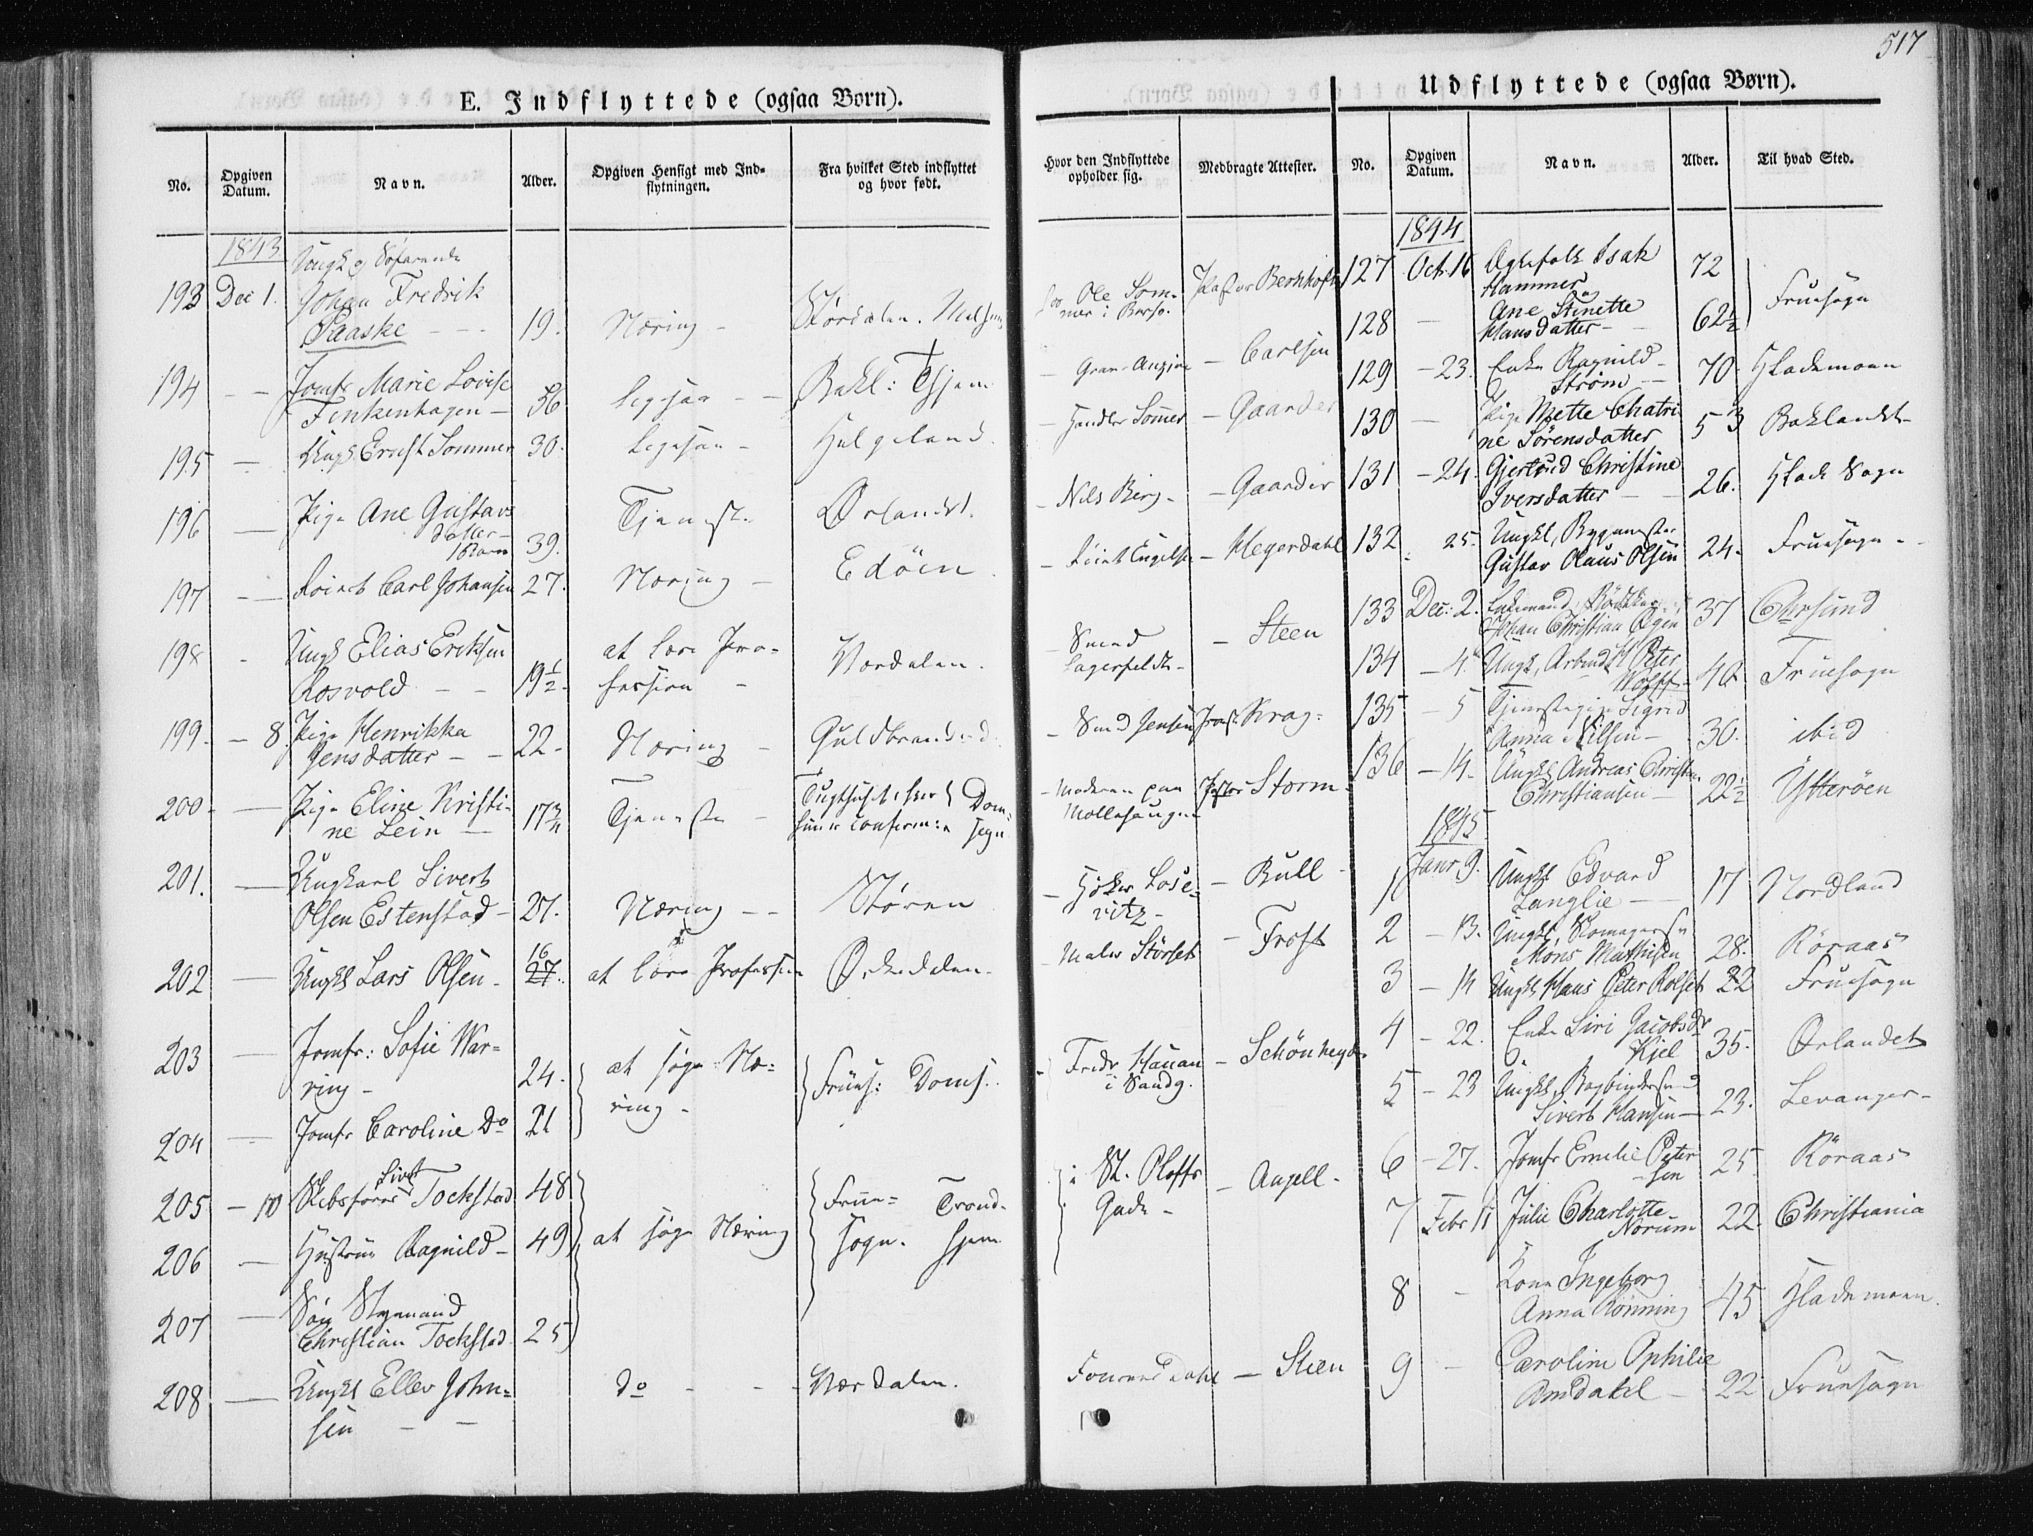 517
E. Indflyttede (ogsaa Børn).
No. Opgiven Datum. Navn. Alder. Opgiven Hensigt med Indflytningen. Fra hvilket Sted indflyttet og hvor født. Hvor den Indflyttede opholder sig. Medbragte Attester.
1843
193 Dec 1. Ungk og Søfarende
Johan Fredrik
Paaske 19. Næring Størdalen. Ole Sommer i
194 Jomfr Marie Lovise
Finkenhagen 36 Ligesaa Bakl: Carlsen
195 Ungk Ernst Sommer 30. Ligesaa Helgeland Handler Sommer Gaarder
196 Pige Ane Gustavs
datter
1 Barn 39. Tjeneste Ørlandet. Nils Berg Gaarder
197 Carl Johansen 27. Næring Edöen Hegerdahl
198 Ungk Elias Eriksen
Rosvold 19½ at lære Profession Værdalen. Smed Lagerfeldt Steen
199 8 Pige Henrikka
Jensdatter 22 Næring Guldbrandsd. Smed Jensen Provst Krag
200 Pige Eline Kristi-
ne Lein 17¾ Tjeneste Domsogn Moderen paa Møllehaugen Pastor Storm
201. Ungkarl Sivert
Olsen Estenstad 27. Næring Støren Bull
202 Ungk Lars Olsen 16 27. at lære Profession Ørkedalen. Maler Störset Frost
203 Jomfr: Sofie War-
ring 24. at søge Næ-
ring Frues: Doms. Fredr Hauan i Sandg. Schönheyder
204 Jomfr Caroline Do 21
205 10 Skibsfører Sivert Tockstad 48 at søge Næring Frue-Sogn. Trondhjem i St. Oloffs Gade Angell
206 Hustrue Ragnild 49
207 Søn Styrmand
Christian Tockstad 25
208 Ungk Ellev John-
sen do Værdalen. Steen
Udflyttede (ogsaa Børn).
No. Opgiven Datum. Navn. Alder. Til hvad Sted.
1844
127 Oct. 16 Ægtefolk Isak
Hammer 72 Fruesogn
128 Ane Stinette
Hansdatter 62½
129 23. Enke Ragnild
Strøm 70 Hlademoen
130 Pige Mette Chatri
ne Sørensdatter 53 Baklandet
131 24. Gjertrud Christine
Iversdatter 26. Hlade Sogn
132 25. Ungkl, Bygmester
Gustav Olaus Olsen 24. Fruesogn
133 Dec: 2. Enkemand, Bødker
Johan Christian 37 Chrsund
134 4. Ungk, Arbmd H Peter
Wolff 40 Fruesogn
135 5 Tjenestepige Sigrid
Anna Nilsen 30. ibid
136 14. Ungkl Andreas Christian
Christiansen 22½ Ytterøen
1845
1 Janr 9. Ungkl Edvard
Langlie 17 Nordland
2 13. Ungkl Skomagersv
Møns Mathisen 28. Röraas
3 14 Ungkl Hans Peter Rolset 22 Fruesogn
4 22. Enke Siri Jacobsdr
Kjel 35. Ørlandet
5 23 Ungkl, Bogbindersvend
Sivert Hansen 23. Levanger
6 27. Jomfr Emelie Peter
sen 25 Röraas
7 Febr 11 Julie Charlotte
Norum 22. Christiania
8 Kone Ingeborg
Anna Rönning 45 Hlademoen.
9 Caroline Ophilie
Amdahl 22 Fruesogn